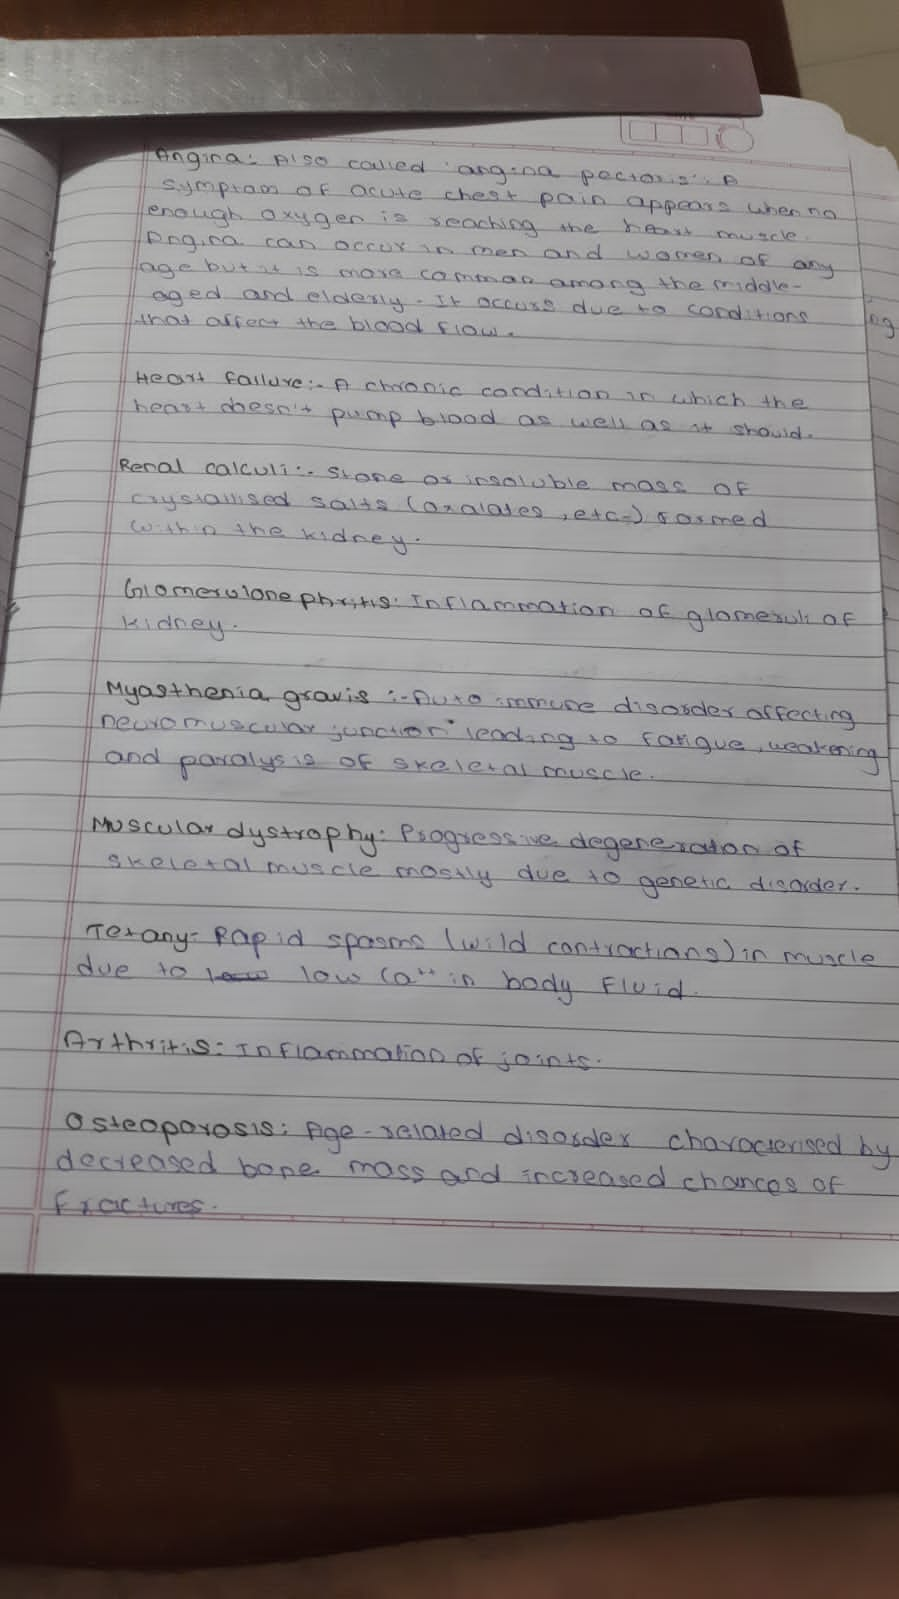 Angina: Also called 'angina pectoris'. A
symptom of acute chest pain appears when no
enough oxygen is reaching the heart muscle.
Angina can occur in men and women of any
age but it is more common among the middle-
aged and elderly. It occurs due to conditions
that affect the blood flow.
Heart failure:- A chronic condition in which the
heart doesn't pump blood as well as it should.
Renal calculi:- Stone or insoluble mass of
crystallised salts (oxalates, etc.) formed
within the kidney.
Glomerulonephritis: Inflammation of glomeruli of
kidney.
Myasthenia gravis :- Auto immune disorder affecting
neuromuscular junction leading to fatigue, weakening
and paralysis of skeletal muscle.
Muscular dystrophy: Progressive degeneration of
skeletal muscle mostly due to genetic disorder.
Tetany: Rapid spasms (wild contractions) in muscle
due to low Ca++ in body fluid.
Arthritis: Inflammation of joints.
Osteoporosis: Age-related disorder characterised by
decreased bone mass and increased chances of
fractures.